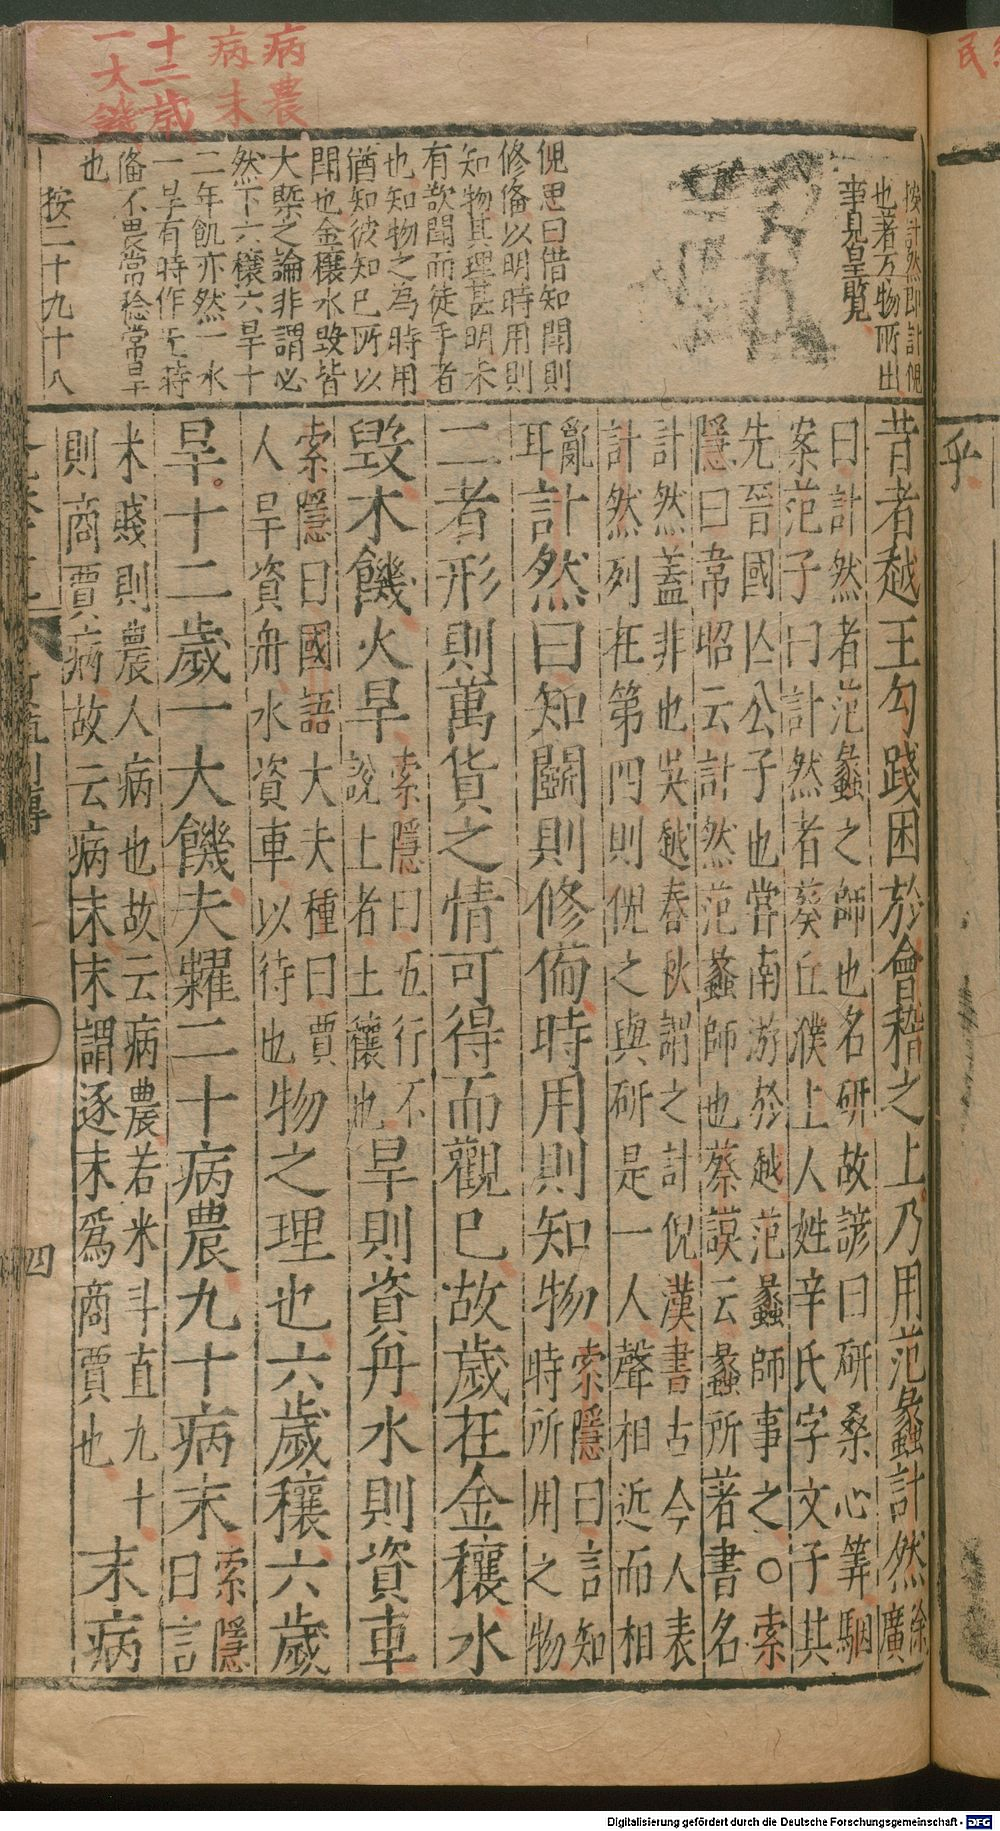 病農
病末
十二歲
一大饑
按計然即計倪
也著万物所出
事見皇覽
倪思曰借知鬪則
修俻以明時用則
知物其理甚明未
有欲鬪而徒手者
也知物之為時用
猶知彼知已所以
鬪也金穰水毀皆
大槩之論非謂必
然下六穰六旱十
二年飢亦然一水
一旱有時作无時
俻不畏常稔常旱
也
按二十九十八
昔者越王勾踐困於會稽之上乃用范蠡計然徐廣
曰計然者范蠡之師也名研故諺曰研桑心筭駰
案范子曰計然者葵丘濮上人姓辛氏字文子其
先晉國亾公子也甞南游於越范蠡師事之○索
隱曰韋昭云計然范蠡師也蔡謨云蠡所著書名
計然蓋非也吳越春秋謂之計倪漢書古今人表
計然列在第四則倪之與研是一人聲相近而相
亂耳計然曰知鬪則修俻時用則知物索隱曰言知時所用之物
二者形則萬貨之情可得而觀巳故歲在金穰水
毀木饑火旱索隱曰五行不說土者土穰也旱則資舟水則資車
索隱曰國語大夫種曰賈人旱資舟水資車以待也物之理也六歲穰六歲
旱十二歲一大饑夫糶二十病農九十病末索隱曰言
米賤則農人病也故云病農若米斗直九十
則商賈病故云病末末謂逐末爲商賈也末病
四
乎
民
Digitalisierung gefördert durch die Deutsche Forschungsgemeinschaft - DFG